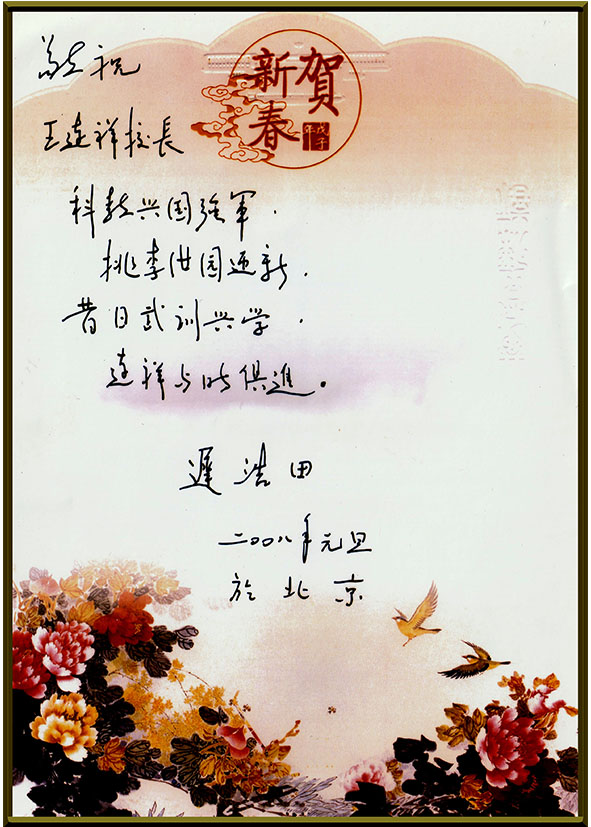 敬祝
賀新春
戊子年
王建祥校長
科教兴国强軍.
桃李满园迎新.
昔日武训兴学.
建祥与时俱進。
遲浩田
二〇〇八年元旦
於北京